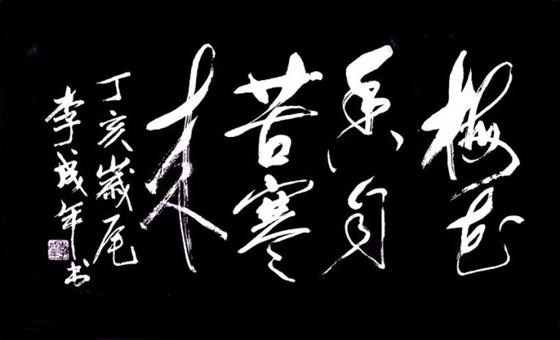 梅花
香自
苦寒
来
丁亥岁尾
李成年书